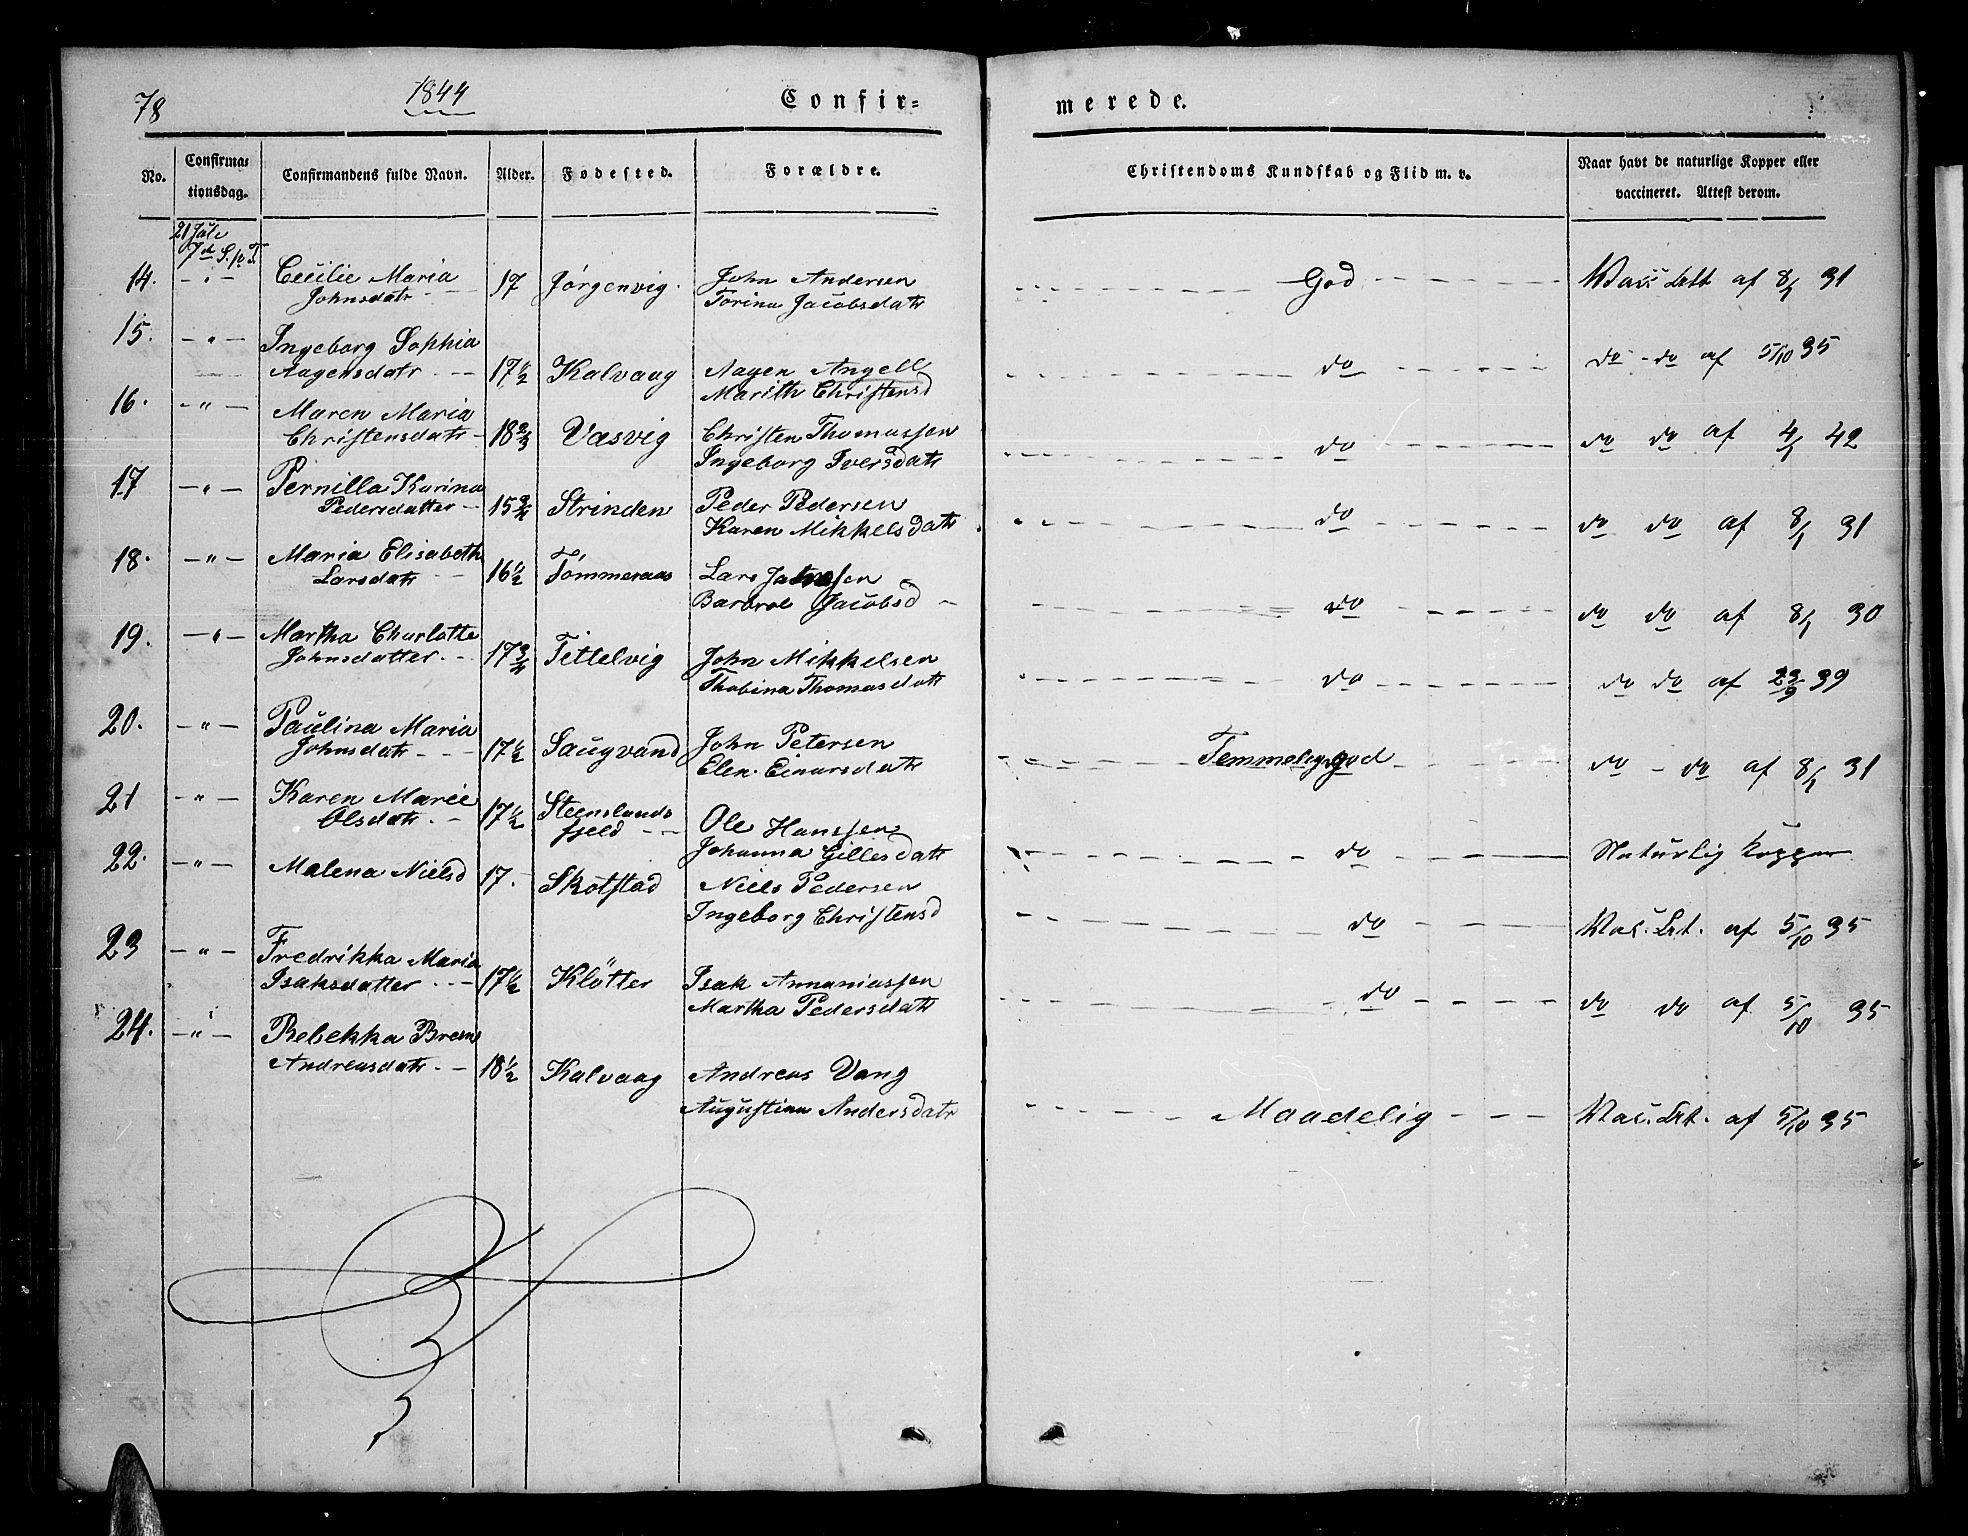 78 1844 Confir= merede.
No. Confirmationsdag. Confirmandens fulde Navn. Alder. Fødested. Forældre. Christendoms Kundskab og Flid m. v. Naar havt de naturlige Kopper eller vaccineret. Attest derom.
21 Juli
7de S. p. T.
14. - " - Cecilie Maria 17 Jørgenvig. John Andersen God af 8/1 31
Johnsdatr Torina Jacobsdatr
15. - " - Ingeborg Sophia
Aagensdatr 17 1/2 Kalvaag Aagen Angell do do - do af 5/10 35
Marith Christensd
16. - " - Maren Maria
Christensdatr 18 2/3 Vasvig Christen Thomassen do do do af 4/1 42
Ingeborg Iversdatr
17 - " - Pernilla Karina
Pedersdatter 15 3/4 Strinden Peder Pedersen do do do af 8/1 31
Karen Mikkelsdatr
18. - " - Maria Elisabeth
Larsdatr 16 1/2 Tømmeraas Lars do do do af 8/1 30
Barbroe Jacobsd
19. - " - Martha Charlotte
Johnsdatter 17 3/4 Tettelvig John Mikkelsen do do do af 23/9 39
Thobina Thomasdatr
20. - " - Paulina Maria
Johnsdatr 17 1/2 Saugvand John Petersen Temmelig god do - do af 8/1 31
Elen Einarsdatr
21 - " - Karen Marie
Olsdatr. 17 1/2 Steenslands
fjeld Ole Hanssen do Naturlig Kopper
Johanna Gillesdatr
22. - " - Malena Nielsd 17. Skotstad Niels Pedersen do Vac. Att. af 5/10 35
Ingeborg Christensd
23 - " - Fredrikka Maria
Isaksdatter 17 1/2 Kløtter Isak Annaniassen do do do af 5/10 35
Martha Pedersdatr
24. - " - Rebekka
Andreasdatr. 18 1/2 Kalvaag Andreas Vang Maadelig Vac. Att. af 5/10 35
Augustina Andersdatr